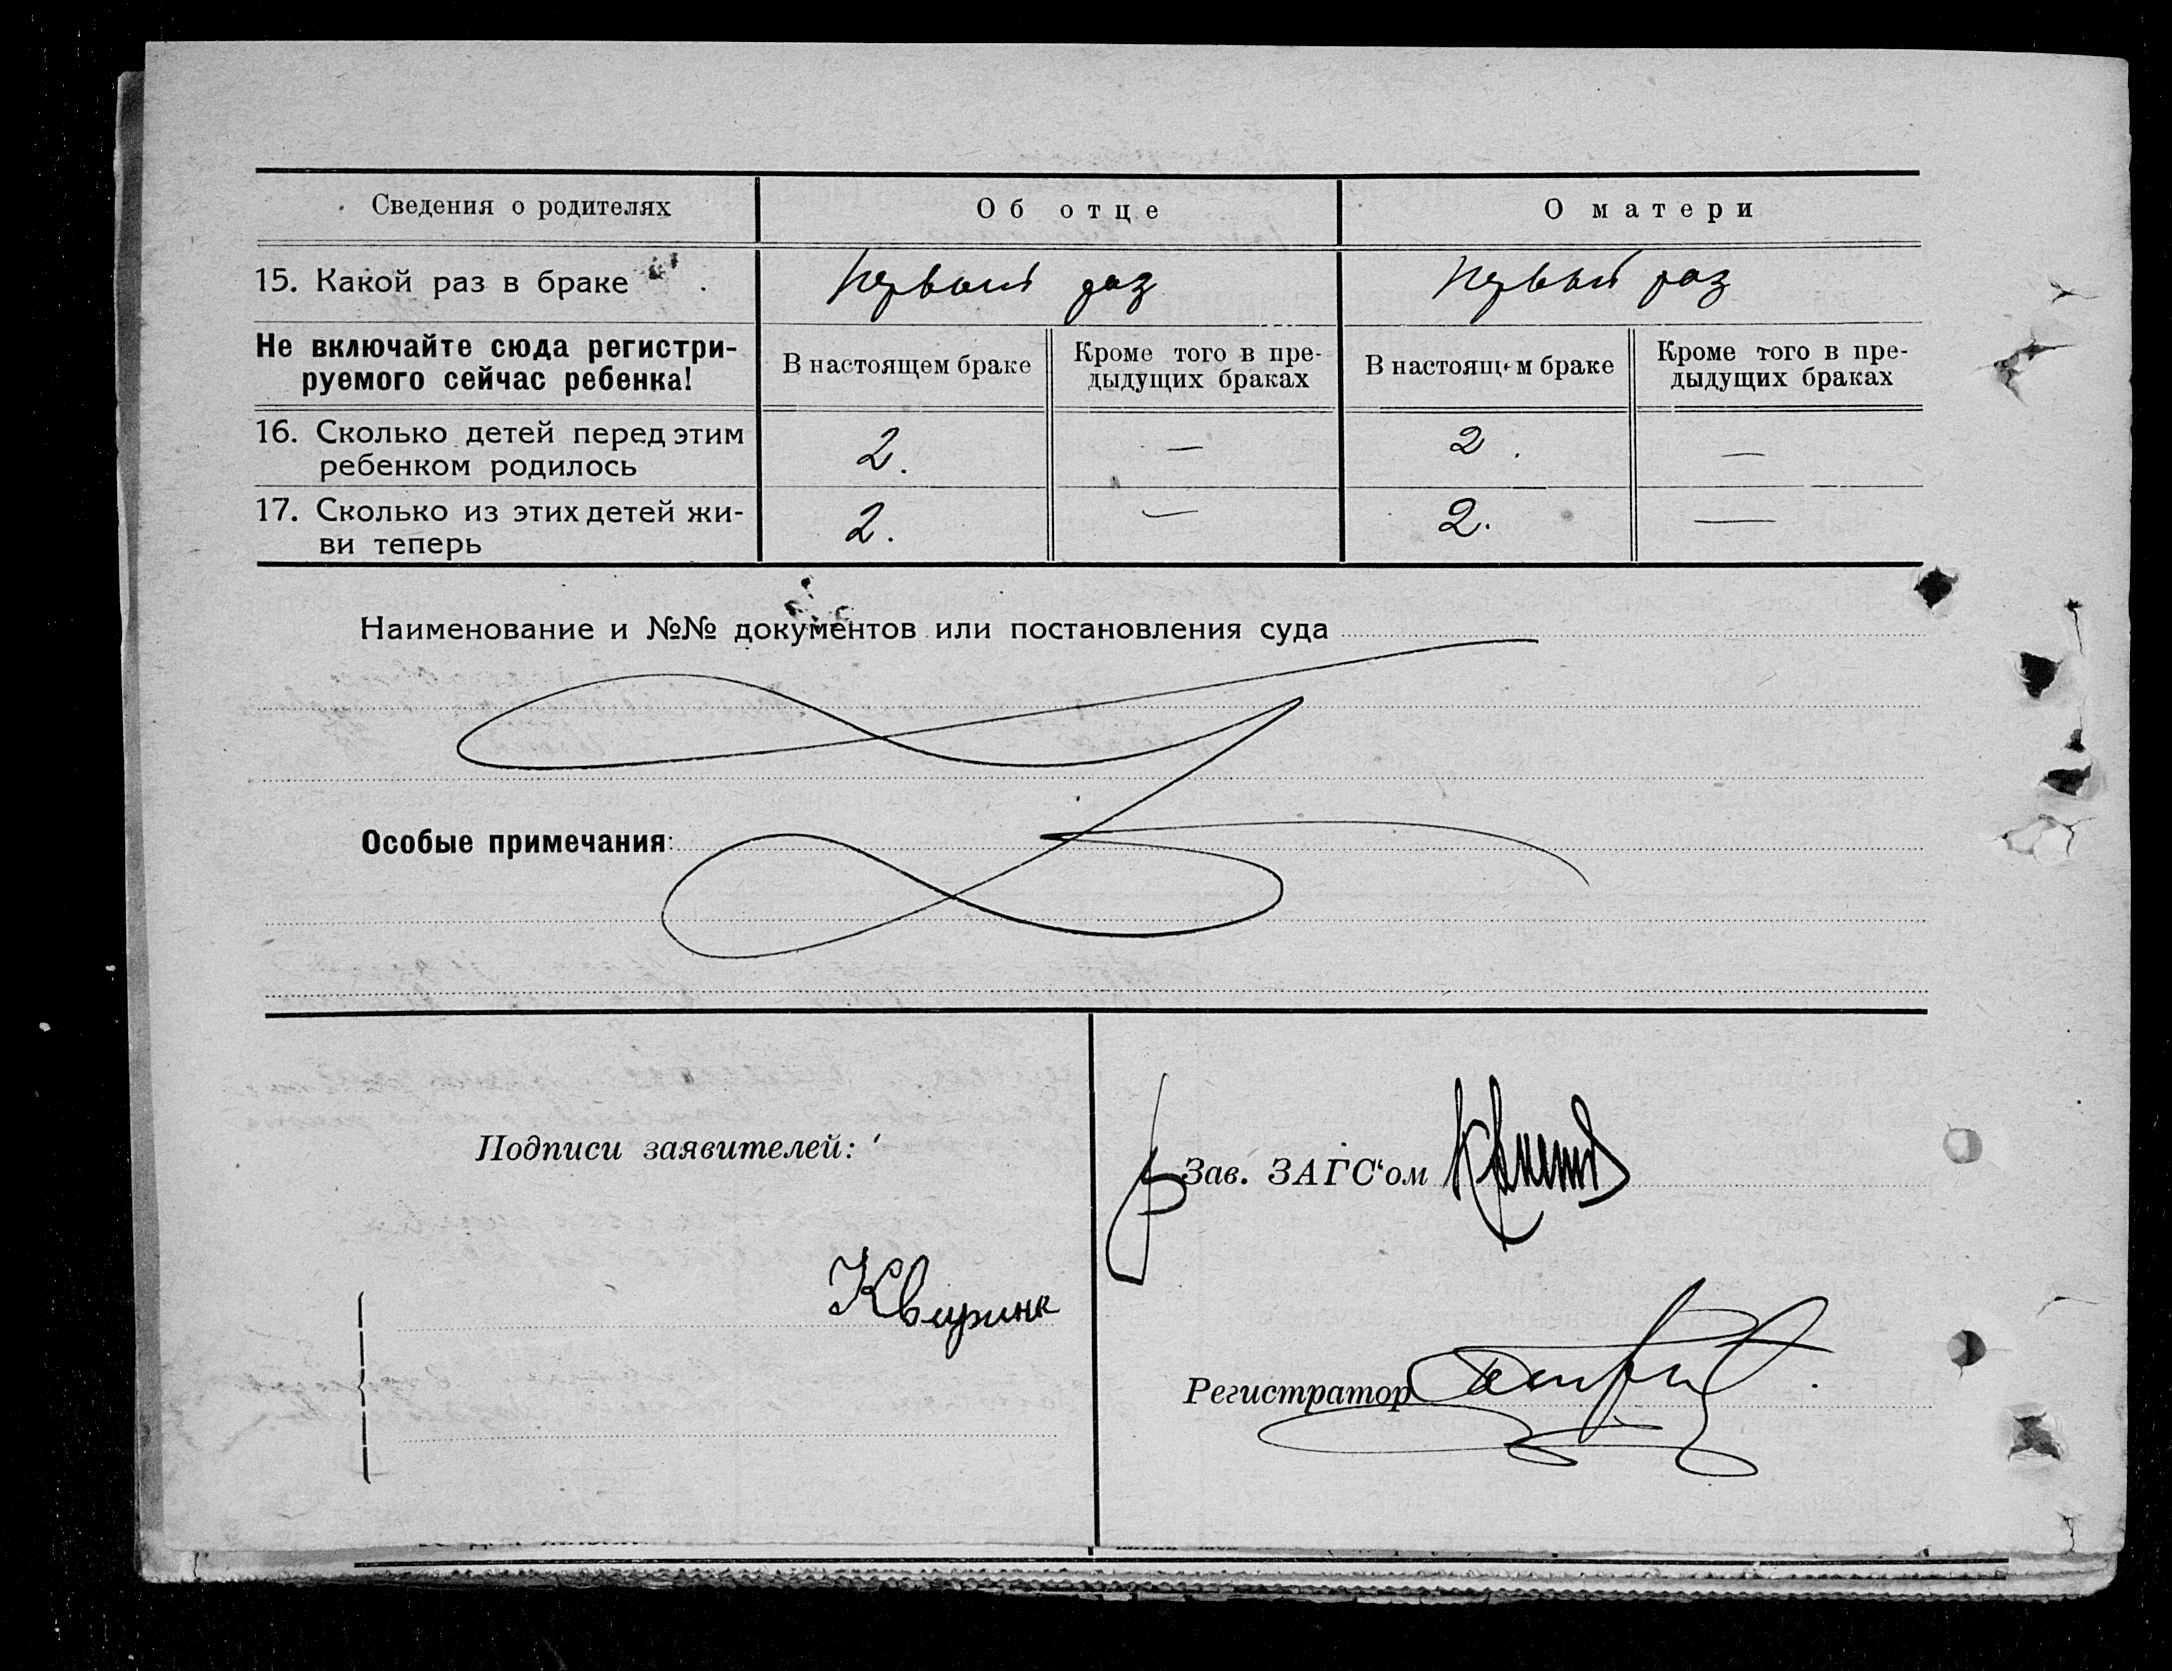 Сведения о родителях Об отце О матери
15. Какой раз в браке Первый раз Первый раз
Не включайте сюда регистри-
руемого сейчас ребенка!
В настоящем браке Кроме того в пре-
дыдущих браках
В настоящем браке Кроме того в пре-
дыдущих браках
16. Сколько детей перед этим
ребенком родилось 2. — 2. —
17. Сколько из этих детей жи-
ви теперь 2. — 2. —
Наименование и №№ документов или постановления суда
Особые примечания:
Подписи заявителей:
Зав. ЗАГС‘ом
Регистратор